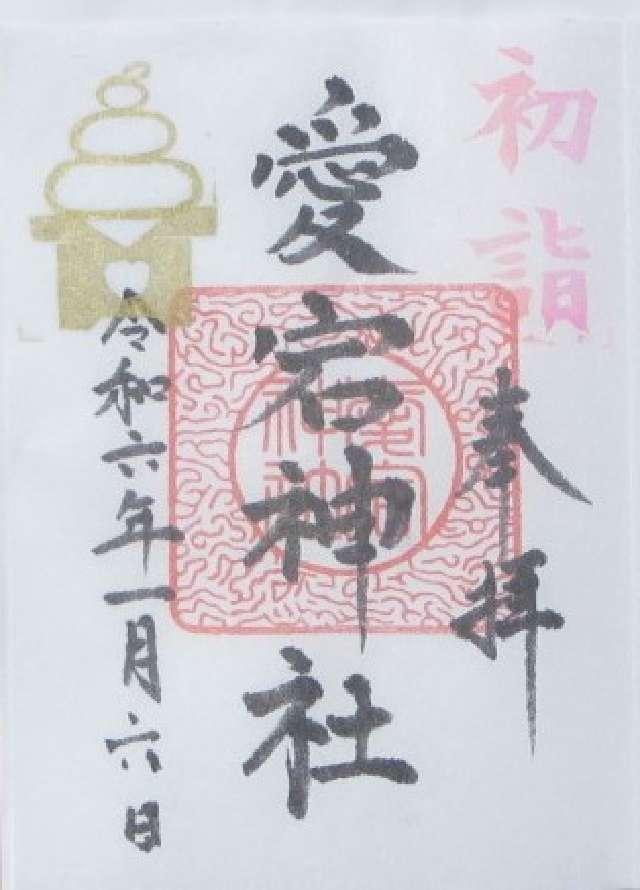 初詣
奉拝
愛宕神社
令和六年一月六日